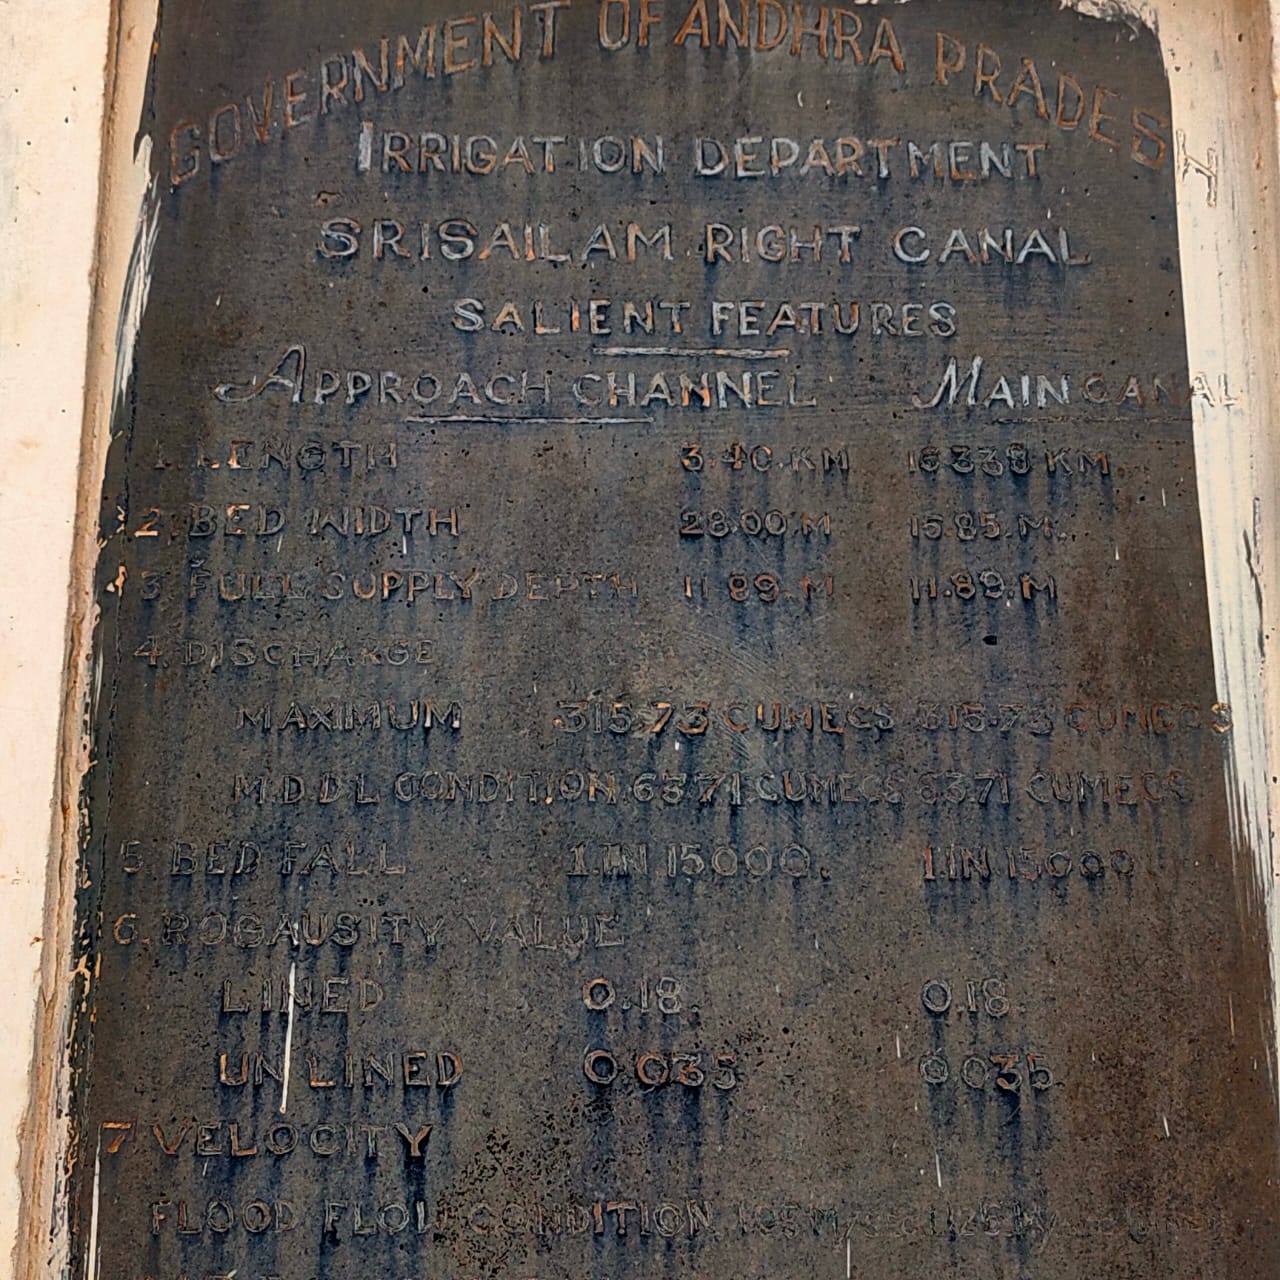 GOVERNMENT OF ANDHRA PRADESH
IRRIGATION DEPARTMENT
SRISAILAM RIGHT CANAL
SALIENT FEATURES
APPROACH CHANNEL MAIN CANAL
1. LENGTH 3.40.KM 16.338 KM.
2. BED WIDTH 28.00.M 15.85.M.
3. FULL SUPPLY DEPTH 11.89.M 11.89.M
4. DISCHARGE
MAXIMUM 315.73 CUMECS 315.73 CUMECS
M.D.D.L CONDITION 63.71 CUMECS 63.71 CUMECS
5. BED FALL 1.IN 15000. 1.IN 15000
6. ROGAUSITY VALUE
LINED 0.18. 0.18.
UNLINED 0.035 0.035
7. VELOCITY
FLOOD FLOW CONDITION